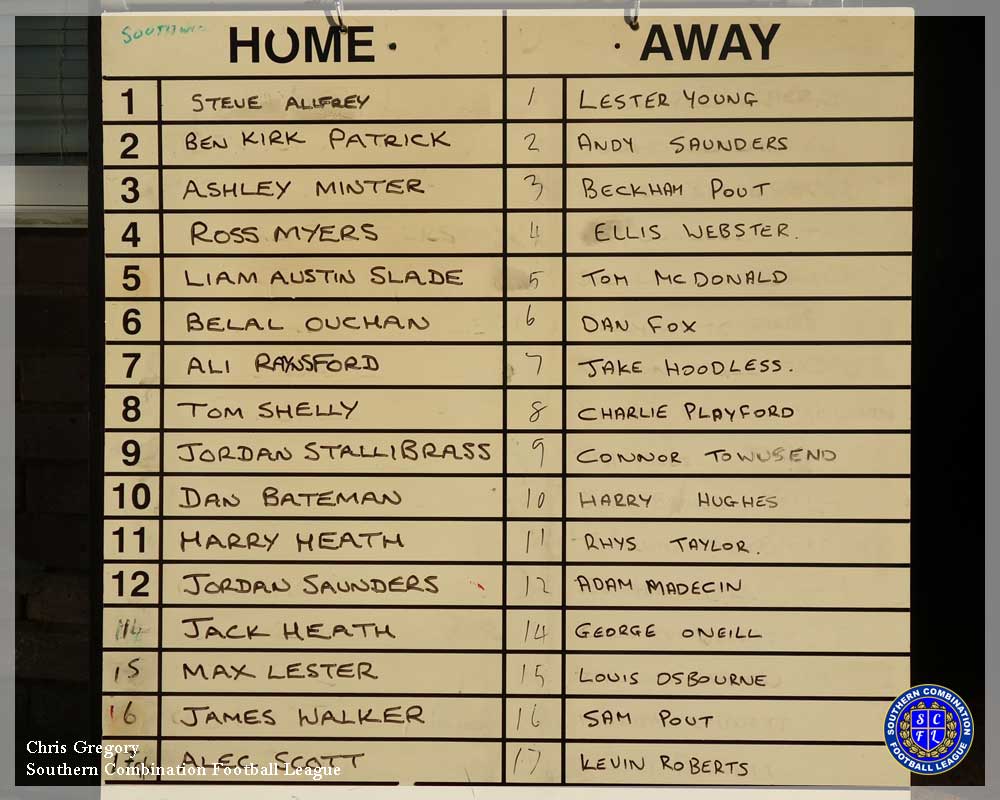 SOUTHWICK
HOME AWAY
1 STEVE ALLFREY 1 LESTER YOUNG
2 BEN KIRK PATRICK 2 ANDY SAUNDERS
3 ASHLEY MINTER 3 BECKHAM POUT
4 ROSS MYERS 4 ELLIS WEBSTER.
5 LIAM AUSTIN SLADE 5 TOM MCDONALD
6 BELAL OUCHAN 6 DAN FOX
7 ALI RAYNSFORD 7 JAKE HOODLESS.
8 TOM SHELLY 8 CHARLIE PLAYFORD
9 JORDAN STALLIBRASS 9 CONNOR TOWNSEND
10 DAN BATEMAN 10 HARRY HUGHES
11 HARRY HEATH 11 RHYS TAYLOR.
12 JORDAN SAUNDERS 12 ADAM MADECIN
14 JACK HEATH 14 GEORGE ONEILL
15 MAX LESTER 15 LOUIS OSBOURNE
16 JAMES WALKER 16 SAM POUT
ALEC SCOTT 17 KEVIN ROBERTS
Chris Gregory
Southern Combination Football League
SOUTHERN COMBINATION
SCFL
FOOTBALL LEAGUE